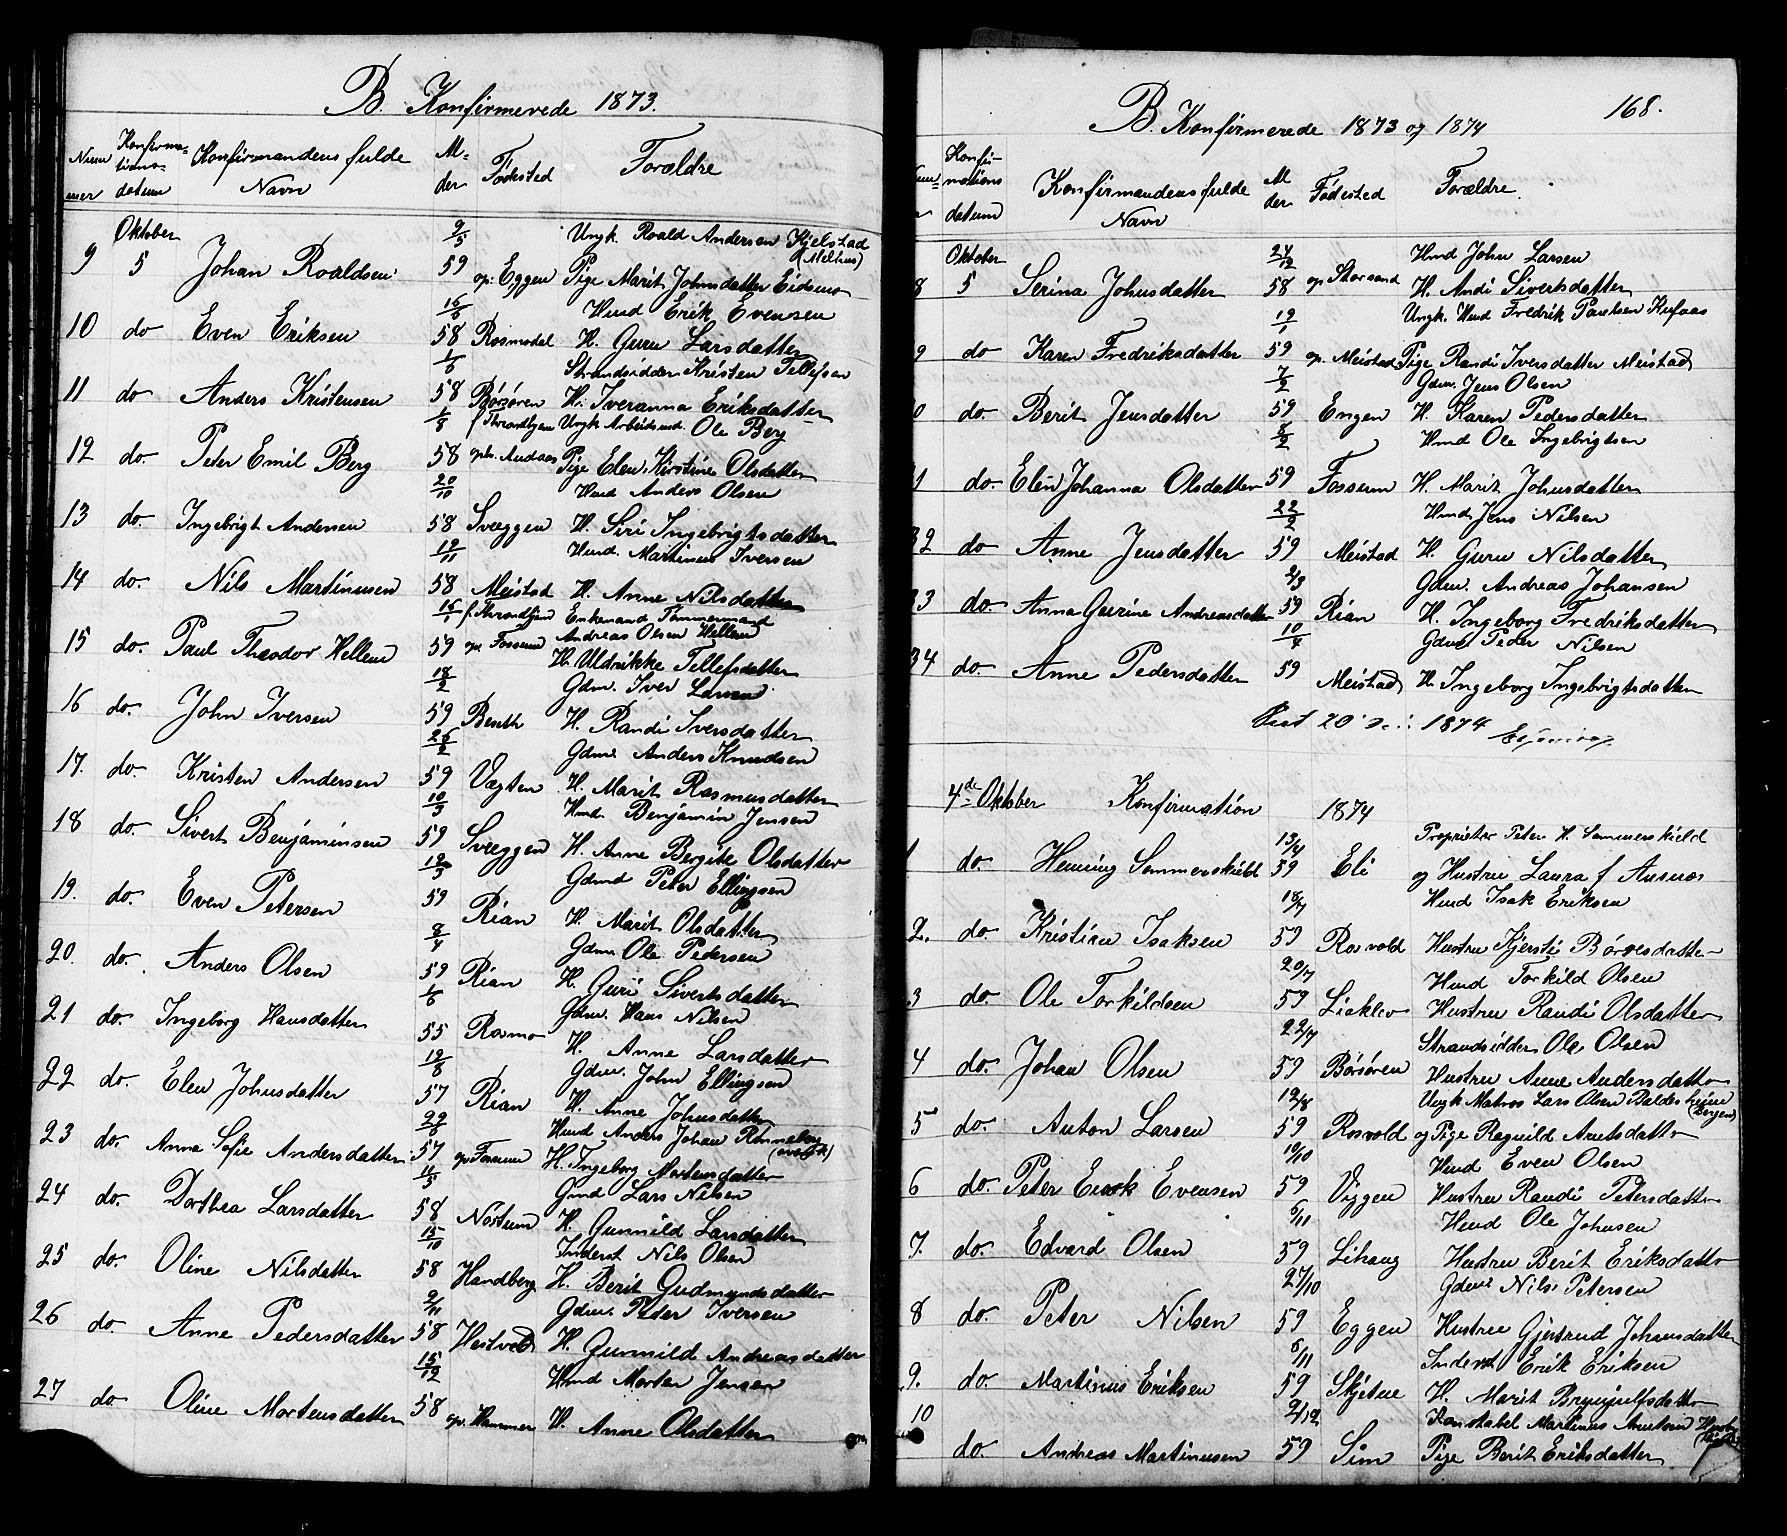 B. Konfirmerede 1873.
Konfirma-
Num mer tions- datum Konfirmandens fulde Navn Al- der Fødested Forældre
Oktober 9/5 Ungk. Roald Andersen Kjelstad (Melhus)
9 5 Johan Roaldsen 59 op. Eggen Pige Marit Johnsdatter Eidsmo
16/6 Hmd Erik Evensen
10 do Even Eriksen 58 Rosmodal H. Guru Larsdatter
1/6 Strandsidder Kristen Tellefsen
11 do Anders Kristensen 58 Børsøren H. Iveranna Eriksdatter
1/8 f. Throndhjem Ungk Arbeidsmd. Ole Berg
12 do. Peter Emil Berg 58 oph. Andaas Pige Elen Kirstine Olsdatter
20/10 Hmd Anders Olsen
13 do. Ingebrigt Andersen 58 Sveggen H. Siri Ingebrigtsdatter
19/11 Hmd. Martinus Iversen
14 do. Nils Martinusen 58 Meistad H. Anne Nilsdatter
16/1 f. Throndhjem Enkemand Tømmermand
Andreas Olsen Hellem
15 do. Paul Theodor Hellem 59 op. Fossum H. Uldrikke Tellefsdatter
18/2 Gdm. Iver Larsen
16 do. John Iversen 59 Benth H. Randi Iversdatter
25/2 Gdm. Anders Knudsen
17. do. Kristen Andersen 59 Vægten H. Marit Rasmusdatter
10/3 Hmd. Benjamin Jensen
18 do. Sivert Benjaminsen 59 Sveggen H. Anne Bergite Olsdatter
12/3 Gdmd Peter Ellingsen
19. do. Even Petersen 59 Rian H. Marit Olsdatter
8/4 Gdm Ole Pedersen
20. do. Anders Olsen 59 Rian H. Guri Sivertsdatter
1/6 Gdm. Hans Nilsen
21 do. Ingeborg Hansdatter 55 Rosmo H. Anne Larsdatter
19/8 Gdm. John Ellingsen
22 do. Elen Johnsdatter 57 Rian H. Anne Johnsdatter
Hmd Anders Johan Ronneberg
23 do. Anna Sofie Andersdatter 57 op. Fossum H. Ingeborg Mortensdatter
11/5 Gmd Lars Nilsen
24 do. Dorthea Larsdatter 58 Nortum H. Gunnild Larsdatter
15/10 Inderst Nils Olsen
25 do. Oline Nilsdatter 58 Handberg H. Berit Gudmundsdatter
9/11 Gdm. Peter Iversen
26 do. Anne Pedersdatter 58 Hestved H. Gunnild Andreasdatter
15/12 Hmd Morten Jensen
27 do. Oline Mortensdatter 58 op. Hammer H. Anne Olsdatter
168.
B. Konfirmerede 1873 og 1874
Konfir- mations datum Konfirmandens fulde Navn Al der Fødested Forældre.
Oktober 24/12 Hmd John Larsen
8 5 Serina Johnsdatter 58 op Storsand H. Andi Sivertsdatter
19/1 Ungk. Hmd Fredrik Paulsen Hufaas
9 do Karen Fredriksdatter 59 op. Meistad Pige Randi Iversdatter Meistad
7/2 Gdm. Jens Olsen
0 do. Berit Jensdatter 59 Engen H. Karen Pedersdatter
8/2 Hmd Ole Ingebrigtsen
1 do. Elen Johanna Olsdatter 59 Fossum H. Marit Johnsdatter
22/2 Hmd Jens Nilsen
32 do Anne Jensdatter 59 Meistad H. Guru Nilsdatter
2/3 Gdm. Andreas Johansen
33 do. Anna Gurine Andreasdatter 59 Rian H. Ingeborg Fredriksdatter
10/4 Gdm Peder Nilsen
34 do. Anne Pedersdatter 59 Meistad H. Ingeborg Ingebrigtsdatter
20 1874
4de Oktober Konfirmation 1874
13/4 Proprietær Peter H. Sommerskield
1 do. Henning Sommerskield 59 Eli og Hustru Laura f Ausnes
18/7 Hmd Isak Eriksen
2. do. Kristian Isaksen 59 Rosvold Hustru Kjersti Børresdatter
20/7 Hmd Torkild Olsen
3 do. Ole Torkildsen 59 Lieklev Hustru Randi Olsdatter
22/7 Strandsidder Ole Olsen
4 do. Johan Olsen 59 Børsøren Hustru Anne Andersdatter
12/8 Ungk Matros Lars Olsen Baldersheim (Bergen)
5 do. Anton Larsen 59 Rosvold og Pige Ragnild Arntsdatter
10/10 Hmd Even Olsen
6 do. Peter Erik Evensen 59 Viggen Hustru Randi Petersdatter
6/11 Hmd Ole Johnsen
7. do. Edvard Olsen 59 Lihaug Hustru Berit Eriksdatter
27/10 Gdm Nils Petersen
8 do. Peter Nilsen 59 Eggen Hustru Gjertrud Johnsdatter
6/11 Inderst Erik Eriksen
9. do. Martinus Eriksen 59 Skjetne H. Marit Brynjulfsdatter
10 2/12 Konstabel Martinus Arntsen
do. Andreas Martinusen 59 Sim Pige Berit Eriksdatter